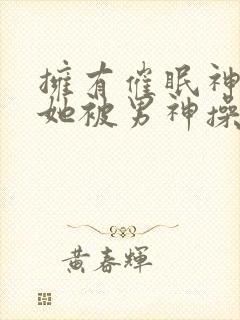 擁有催眠神
她被男神操
黃春輝